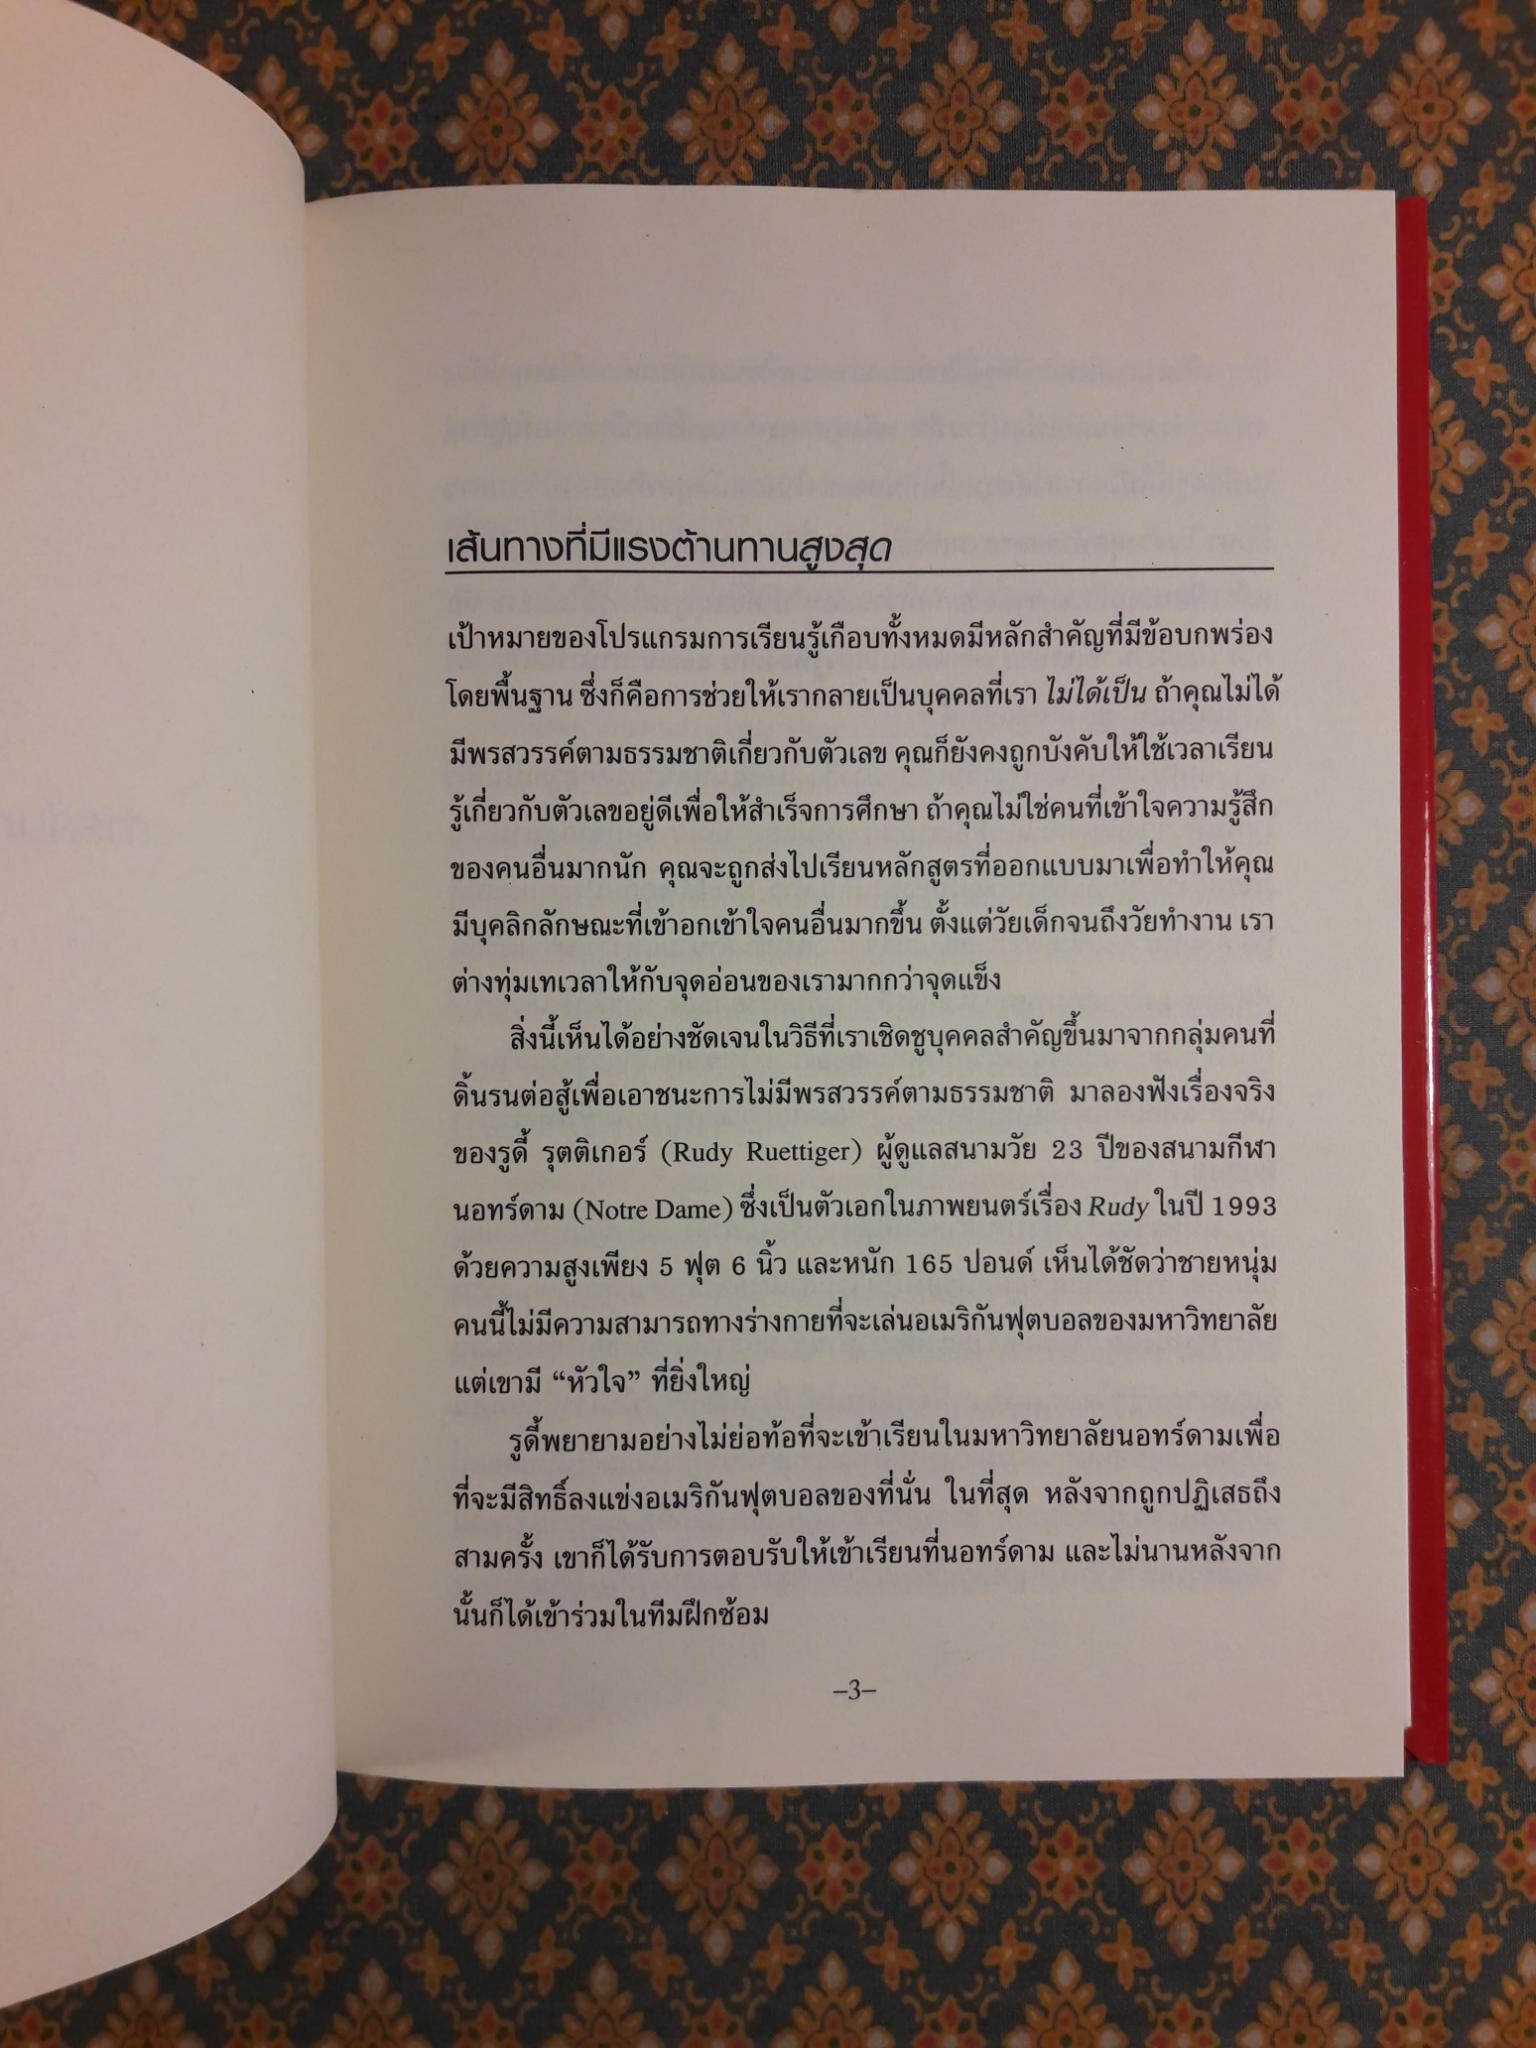 เส้นทางที่มีแรงต้านทานสูงสุด
เป้าหมายของโปรแกรมการเรียนรู้เกือบทั้งหมดมีหลักสำคัญที่มีข้อบกพร่อง
โดยพื้นฐาน ซึ่งก็คือการช่วยให้เรากลายเป็นบุคคลที่เรา ไม่ได้เป็น ถ้าคุณไม่ได้
มีพรสวรรค์ตามธรรมชาติเกี่ยวกับตัวเลข คุณก็ยังคงถูกบังคับให้ใช้เวลาเรียน
รู้เกี่ยวกับตัวเลขอยู่ดีเพื่อให้สำเร็จการศึกษา ถ้าคุณไม่ใช่คนที่เข้าใจความรู้สึก
ของคนอื่นมากนัก คุณจะถูกส่งไปเรียนหลักสูตรที่ออกแบบมาเพื่อทำให้คุณ
มีบุคลิกลักษณะที่เข้าอกเข้าใจคนอื่นมากขึ้น ตั้งแต่วัยเด็กจนถึงวัยทำงาน เรา
ต่างทุ่มเทเวลาให้กับจุดอ่อนของเรามากกว่าจุดแข็ง
สิ่งนี้เห็นได้อย่างชัดเจนในวิธีที่เราเชิดชูบุคคลสำคัญขึ้นมาจากกลุ่มคนที่
ดิ้นรนต่อสู้เพื่อเอาชนะการไม่มีพรสวรรค์ตามธรรมชาติ มาลองฟังเรื่องจริง
ของรูดี้ รุตติเกอร์ (Rudy Ruettiger) ผู้ดูแลสนามวัย 23 ปีของสนามกีฬา
นอทร์ดาม (Notre Dame) ซึ่งเป็นตัวเอกในภาพยนตร์เรื่อง Rudy ในปี 1993
ด้วยความสูงเพียง 5 ฟุต 6 นิ้ว และหนัก 165 ปอนด์ เห็นได้ชัดว่าชายหนุ่ม
คนนี้ไม่มีความสามารถทางร่างกายที่จะเล่นอเมริกันฟุตบอลของมหาวิทยาลัย
แต่เขามี “หัวใจ” ที่ยิ่งใหญ่
รูดี้พยายามอย่างไม่ย่อท้อที่จะเข้าเรียนในมหาวิทยาลัยนอทร์ดามเพื่อ
ที่จะมีสิทธิ์ลงแข่งอเมริกันฟุตบอลของที่นั่น ในที่สุด หลังจากถูกปฏิเสธถึง
สามครั้ง เขาก็ได้รับการตอบรับให้เข้าเรียนที่นอทร์ดาม และไม่นานหลังจาก
นั้นก็ได้เข้าร่วมในทีมฝึกซ้อม
–3–